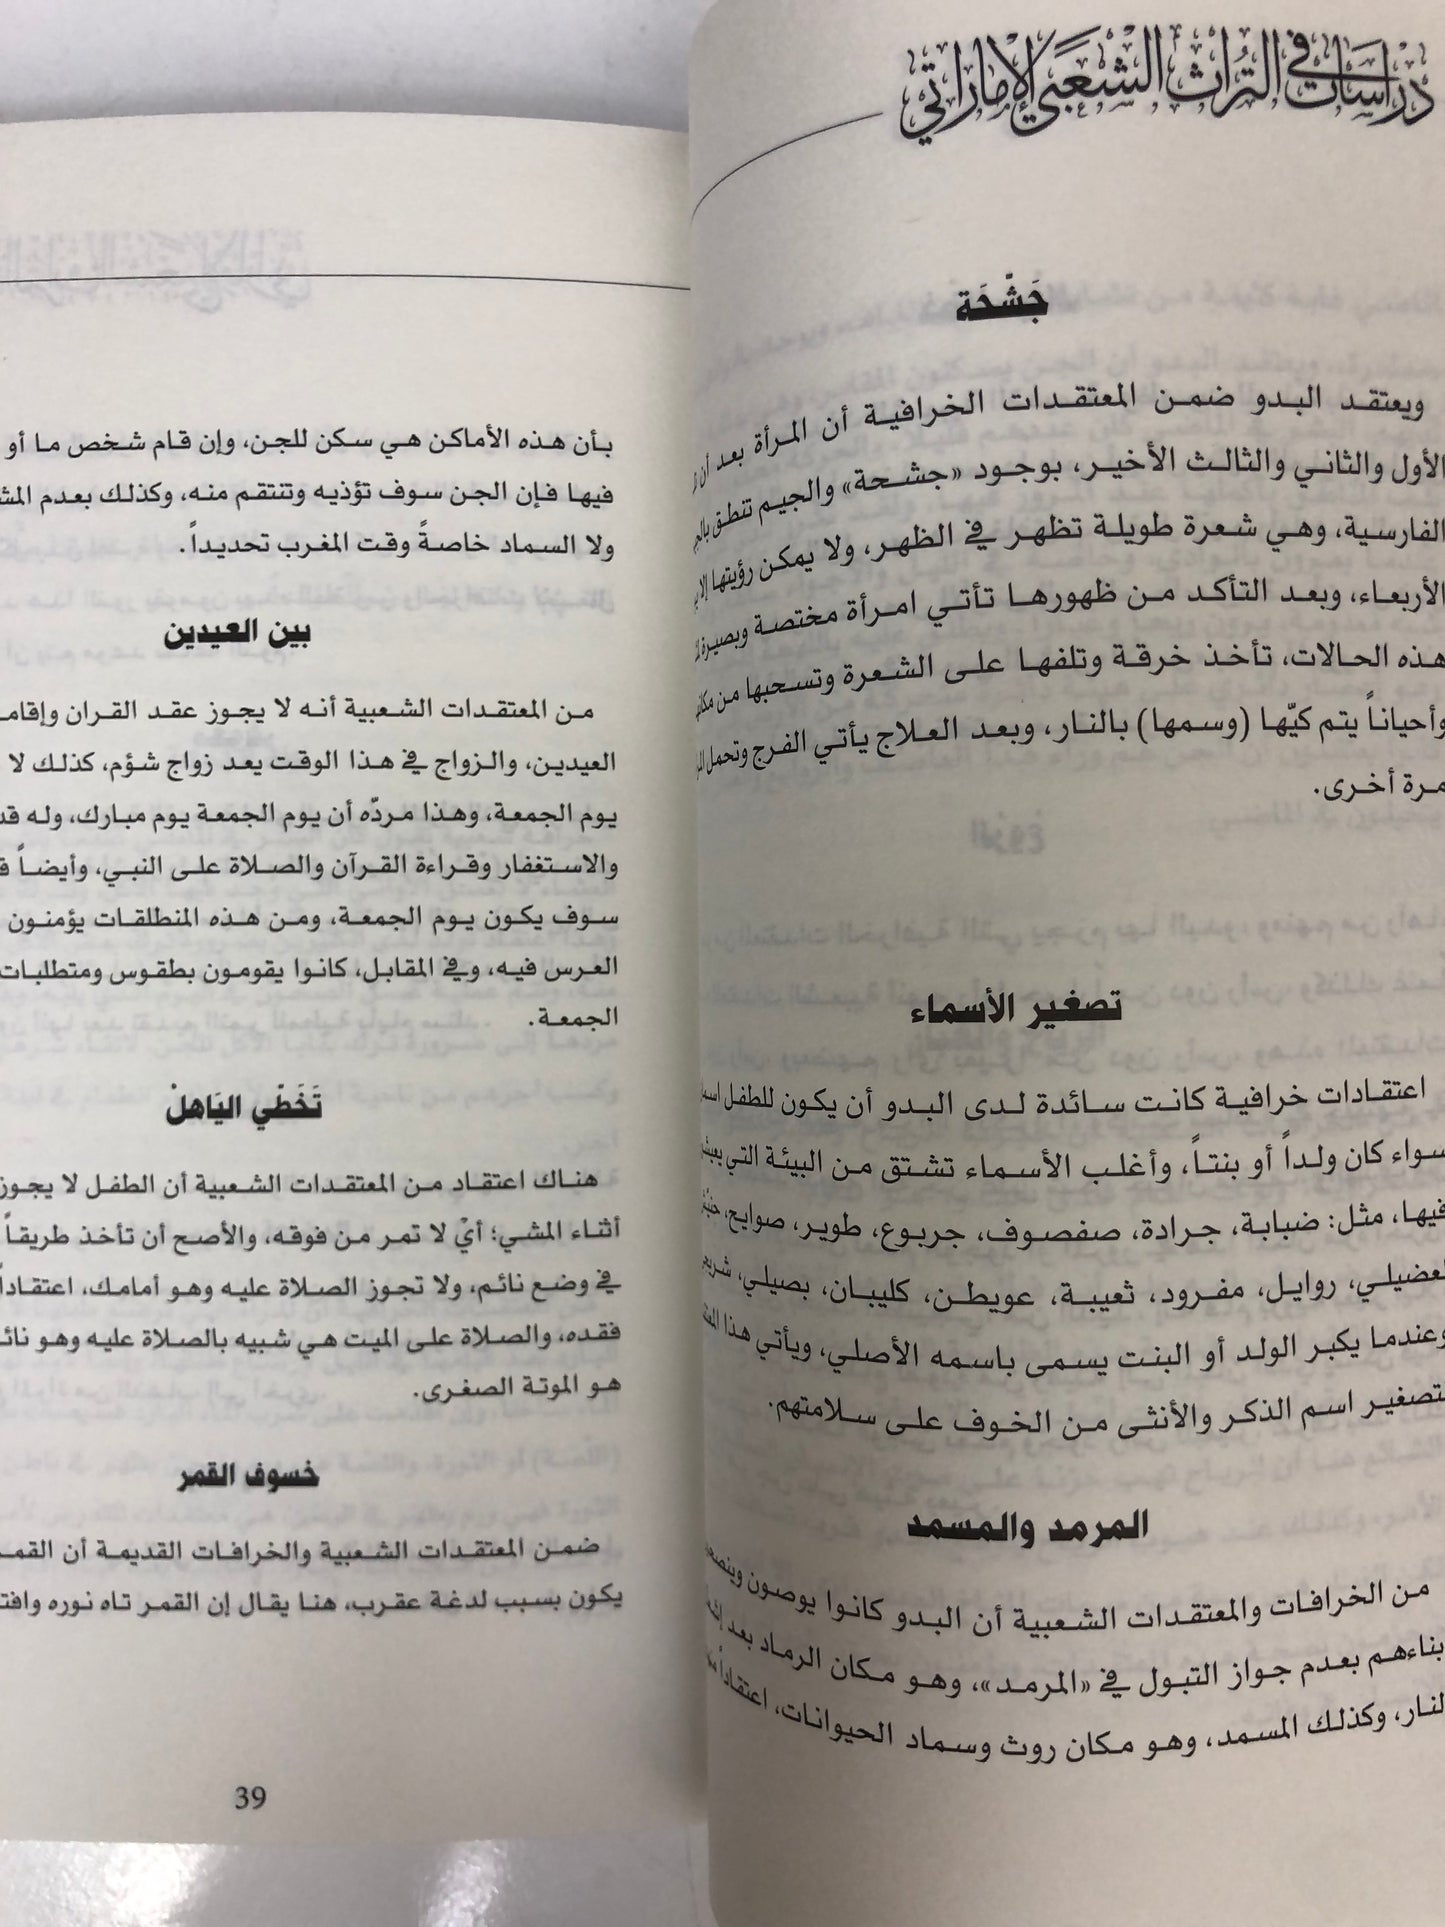 دراسات في التراث الشعبي الإماراتي
جَشْحَة
ويعتقد البدو ضمن المعتقدات الخرافية أن المرأة بعد أن
الأول والثاني والثالث الأخير، بوجود «جشحة» والجيم تنطق
الفارسية، وهي شعرة طويلة تظهر في الظهر، ولا يمكن رؤيتها إلا
الأربعاء، وبعد التأكد من ظهورها تأتي امرأة مختصة وبصيرة
هذه الحالات، تأخذ خرقة وتلفها على الشعرة وتسحبها من
وأحياناً يتم كيّها (وسمها) بالنار، وبعد العلاج يأتي الفرج وتحمل
مرة أخرى.
تصغير الأسماء
اعتقادات خرافية كانت سائدة لدى البدو أن يكون للطفل
سواء كان ولداً أو بنتاً، وأغلب الأسماء تشتق من البيئة التي
فيها، مثل: ضبابة، جرادة، صفصوف، جربوع، طوير، صوايح،
لعضيلي، روايل، مفرود، ثعيبة، عويطن، كليبان، بصيلي،
وعندما يكبر الولد أو البنت يسمى باسمه الأصلي، ويأتي هذا
تصغير اسم الذكر والأنثى من الخوف على سلامتهم.
المرمد والمسمد
من الخرافات والمعتقدات الشعبية أن البدو كانوا يوصون
بناءهم بعدم جواز التبول في «المرمد»، وهو مكان الرماد بعد
لنار، وكذلك المسمد، وهو مكان روث وسماد الحيوانات، اعتقاداً
بأن هذه الأماكن هي سكن للجن، وإن قام شخص ما أو
فيها فإن الجن سوف تؤذيه وتنتقم منه، وكذلك بعدم
ولا السماد خاصةً وقت المغرب تحديداً.
بين العيدين
من المعتقدات الشعبية أنه لا يجوز عقد القران
العيدين، والزواج في هذا الوقت يعد زواج شؤم، كذلك لا
يوم الجمعة، وهذا مردّه أن يوم الجمعة يوم مبارك، وله
والاستغفار وقراءة القرآن والصلاة على النبي، وأيضاً
سوف يكون يوم الجمعة، ومن هذه المنطلقات يؤمنون
العرس فيه، وفي المقابل، كانوا يقومون بطقوس ومتطلبات
الجمعة.
تَخَطّي اليَاهلْ
هناك اعتقاد من المعتقدات الشعبية أن الطفل لا يجوز
أثناء المشي؛ أيْ لا تمر من فوقه، والأصح أن تأخذ طريقاً
في وضع نائم، ولا تجوز الصلاة عليه وهو أمامك، اعتقاداً
فقده، والصلاة على الميت هي شبيه بالصلاة عليه وهو
هو الموتة الصغرى.
خسوف القمر
ضمن المعتقدات الشعبية والخرافات القديمة أن
يكون بسبب لدغة عقرب، هنا يقال إن القمر تاه نوره
39